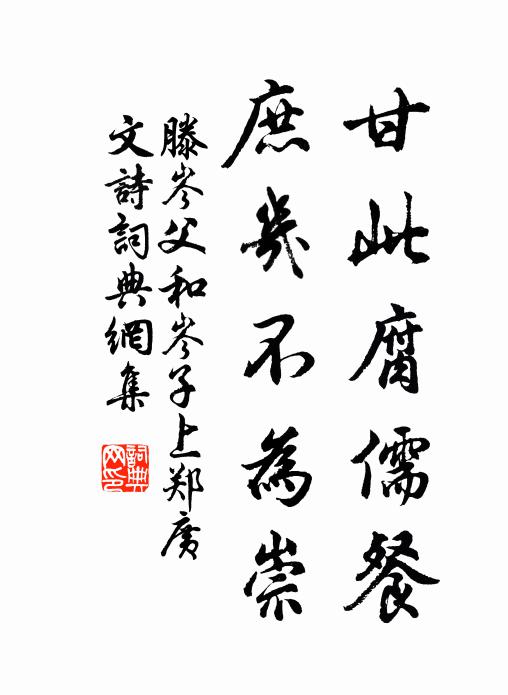 甘此腐儒餐
庶幾不為崇
滕岑父和岑子上郑廣
文詩詞典網集
詞典
网印